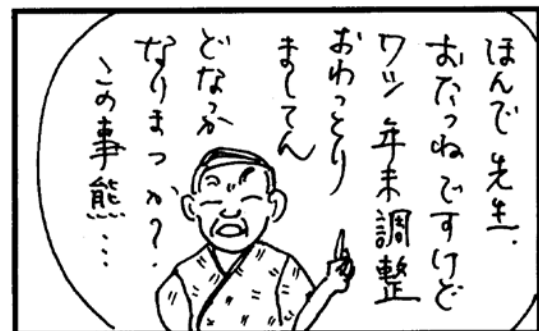 ほんで先生、
おたつねですけど
ワシ年末調整
おわっとり
ましてん
どなっか
なりまっか?
この事態…